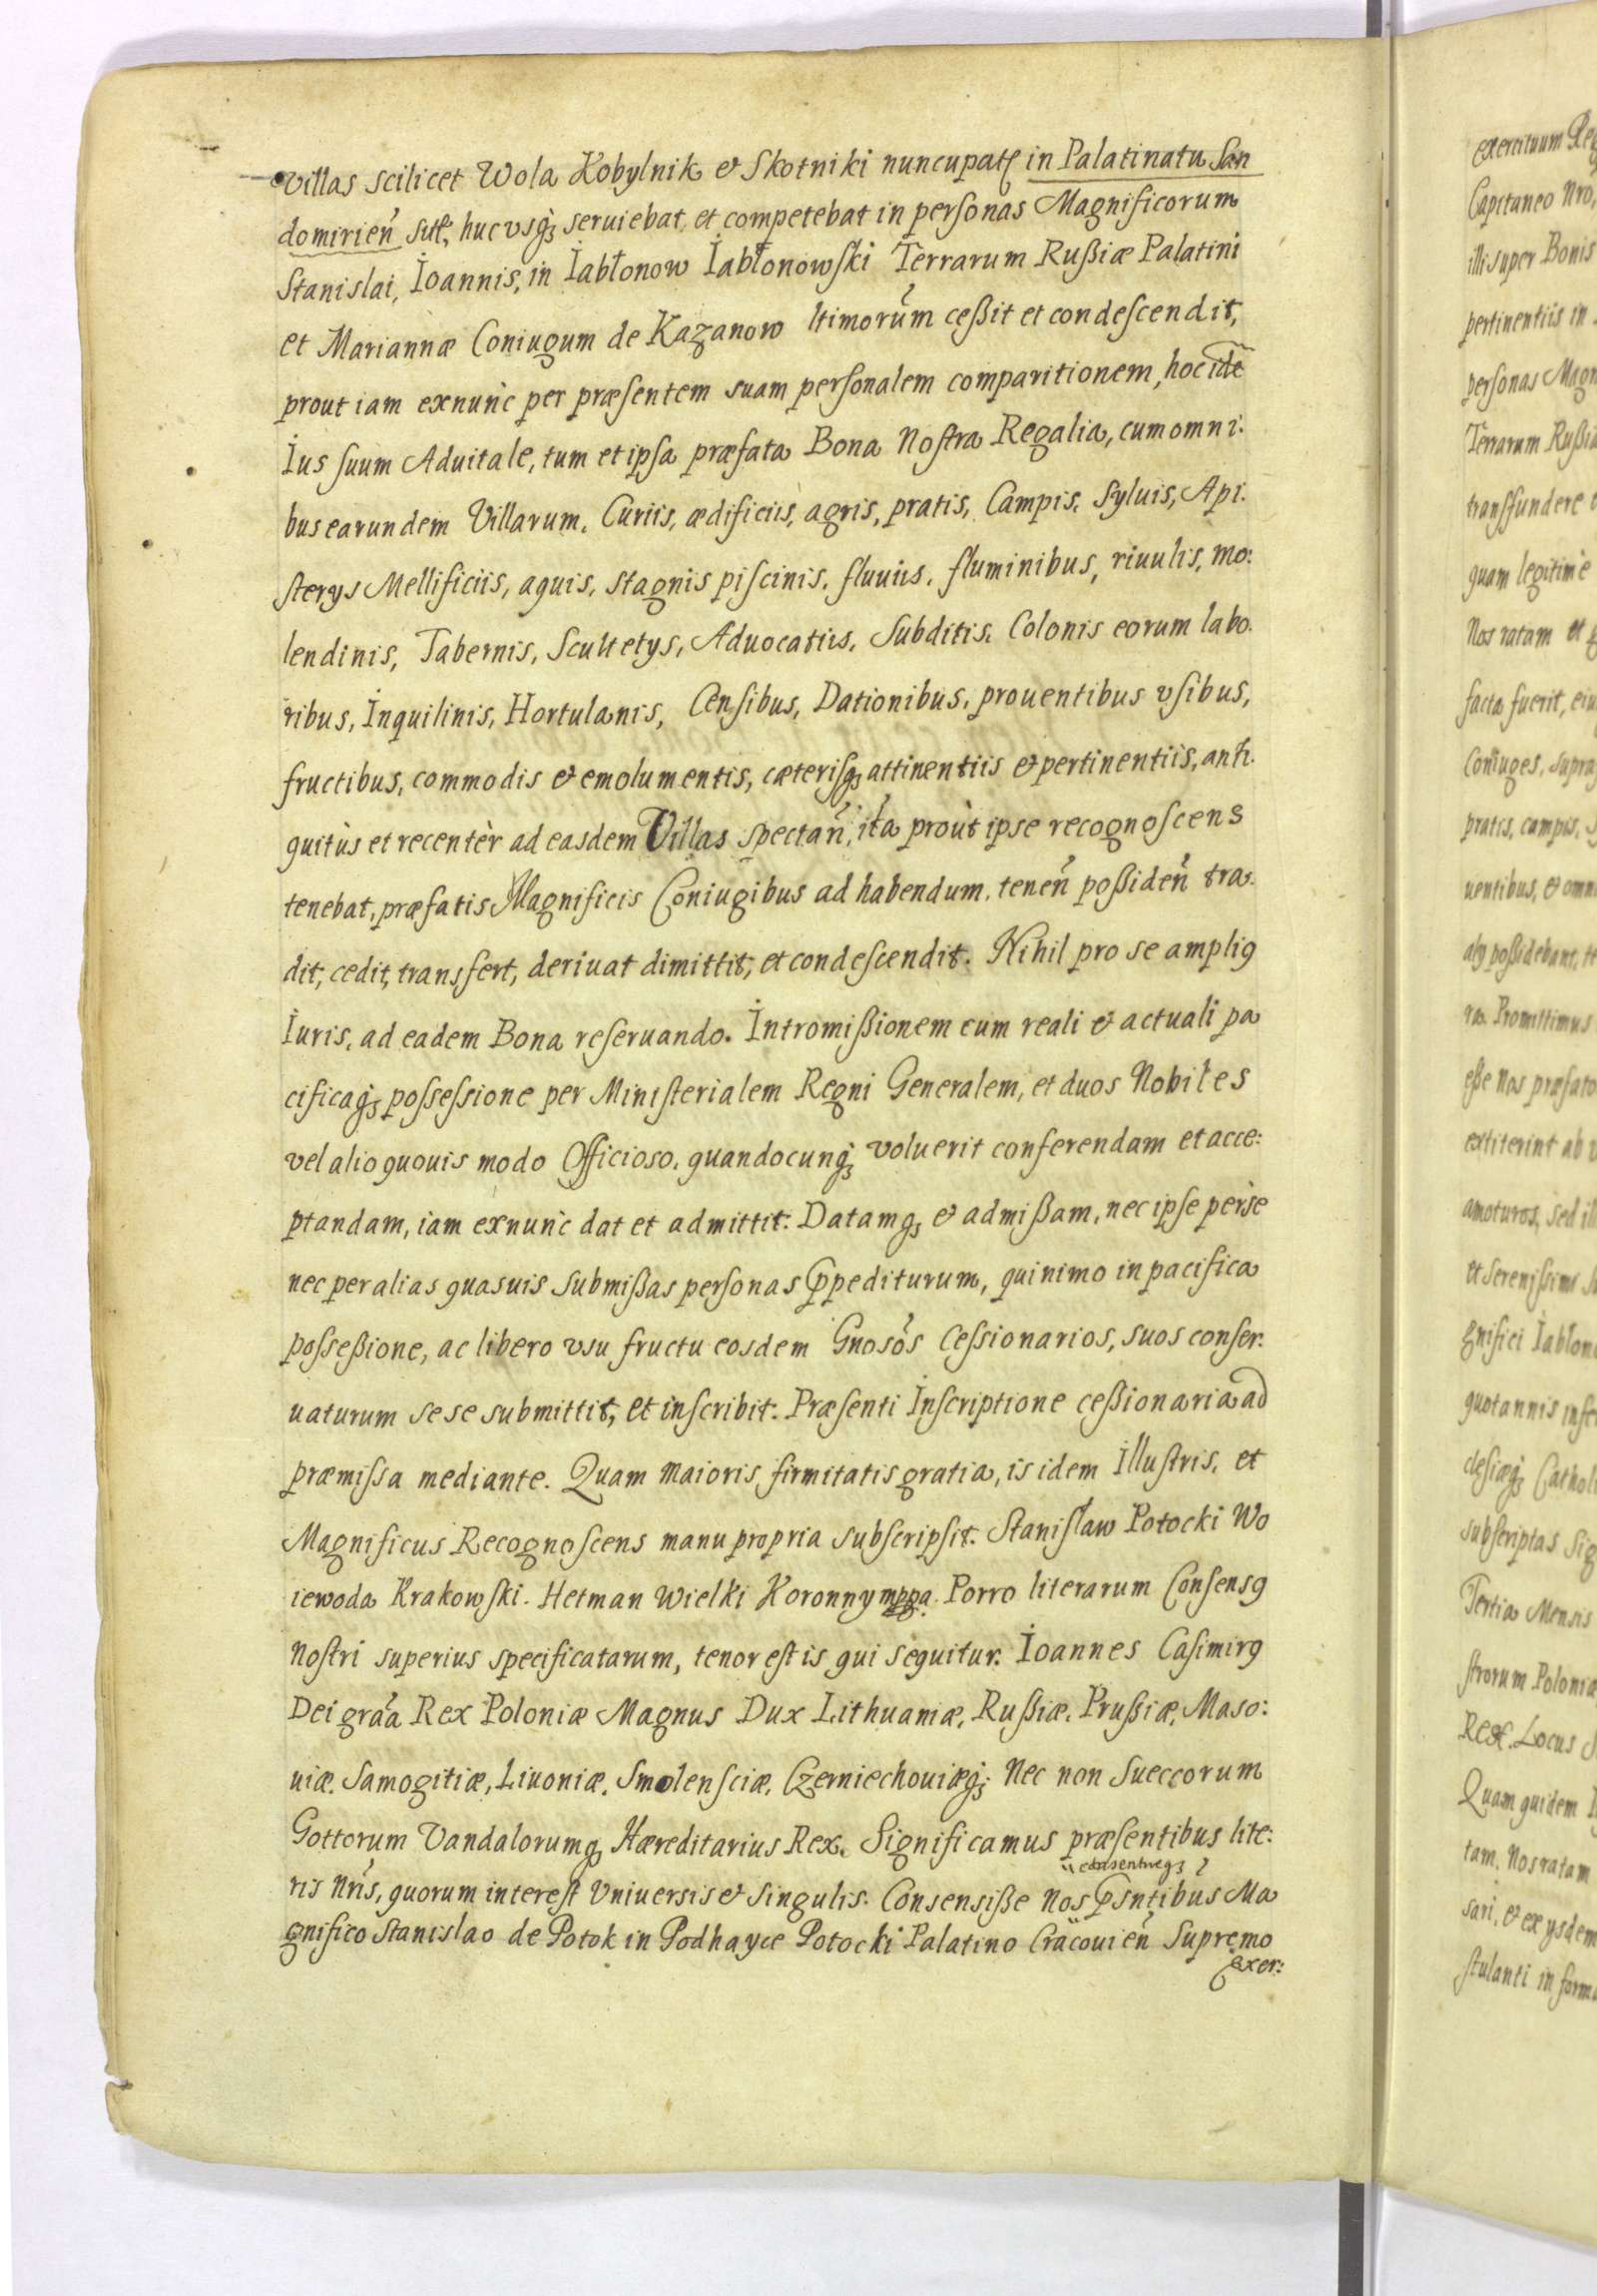 villas scilicet Wola Kobylnik & Skotniki nuncupatę in Palatinatu San
domirien̉ sitę, huc vsq̢ seruiebat, et competebat in personas Magnificorum
Stanislai, Ioannis, in Iabłonow Iabłonowski Terrarum Rußiæ Palatini
et Mariannæ Coniugum de Kazanow ltimorum̉ ceßit et condescendit,
prout iam exnunc per præsentem suam personalem comparitionem, hoc idẽ
Ius suum Aduitale, tum et ipsa præfata Bona Nostra Regalia, cum omni-
bus earundem Villarum, Curiis, ædificiis, agris, pratis, Campis, Syluis, Api-
sterys Mellificiis, aquis, stagnis piscinis, fluuiis, fluminibus, riuulis, mo:
lendinis, Tabernis, Scultetys, Aduocatiis, Subditis, Colonis eorum labo-
ribus, Inquilinis, Hortulanis, Censibus, Dationibus, prouentibus vsibus,
fructibus, commodis & emolumentis, cæterisq̢ attinentiis & pertinentiis, anti-
quitùs et recentèr ad easdem Villas spectan̉, ita proùt ipse recognoscens
tenebat, præfatis Magnificis Coniugibus ad habendum, tenen̉ poßiden̉ tra-
dit, cedit, transfert, deriuat dimittit, et condescendit. Nihil pro se ampliꝰ
Iuris, ad eadem Bona reseruando. Intromißionem cum reali & actuali pa
cificaq̢ possessione per Ministerialem Regni Generalem, et duos Nobiles
vel alio quouis modo Officioso, quandocunq̢ voluerit conferendam et acce:
ptandam, iam exnunc dat et admittit. Datamq̢ & admißam, nec ipse per se
nec per alias quasuis submißas personas p̄pediturum, quinimo in pacifica
posseßione, ac libero vsu fructu eosdem Gnosos̉ Cessionarios, suos conser-
uaturum sese submittit, et inscribit. Præsenti Inscriptione ceßionaria ad
præmissa mediante. Quam maioris firmitatis gratia, is idem Illustris, et
Magnificus Recognoscens manu propria subscripsit. Stanisław Potocki Wo
iewoda Krakowski. Hetman Wielki Koronny mppa. Porro literarum Consensꝰ
nostri superius specificatarum, tenor est is qui sequitur. Ioannes Casimirꝰ
Dei gra̓a Rex Poloniæ Magnus Dux Lithuaniæ, Rußiæ, Prußiæ, Maso:
uiæ, Samogitiæ, Liuoniæ, Smolensciæ, Czerniechouiæq̢ Nec non Sueccorum
Gottorum Vandalorumq̢ Hæreditarius Rex. Significamus præsentibus lite:
ris Nr̉is, quorum interest Vniuersis & Singulis. Consensiße Nos p̄sntibus Ma
consentireq̢
gnifico Stanislao de Potok in Podhayce Potocki Palatino Cracouien̉ Supremo
Exer:
exercituum Reg
Capitaneo Nro,
illi super Bonis
pertinentiis in
personas Magn
Terrarum Rußiæ
transfundere
quam legitimè
Nos ratam et g
facta fuerit, eiu
Coniuges, supra
pratis, campis, s
uentibus, & omni
alij poßidebant, te
ra. Promittimus
eße Nos præfato
extiterint ab v
amoturos, sed il
et Serenißimi Su
gnifici Iabłono
quotannis infe
clesiæq̢ Catholi
subscriptas Sig
Tertia Mensis
strorum Poloniæ
Rex. Locus S
Quam quidem I
tam. Nos ratam
sari, & ex ysdem
stulanti in forma